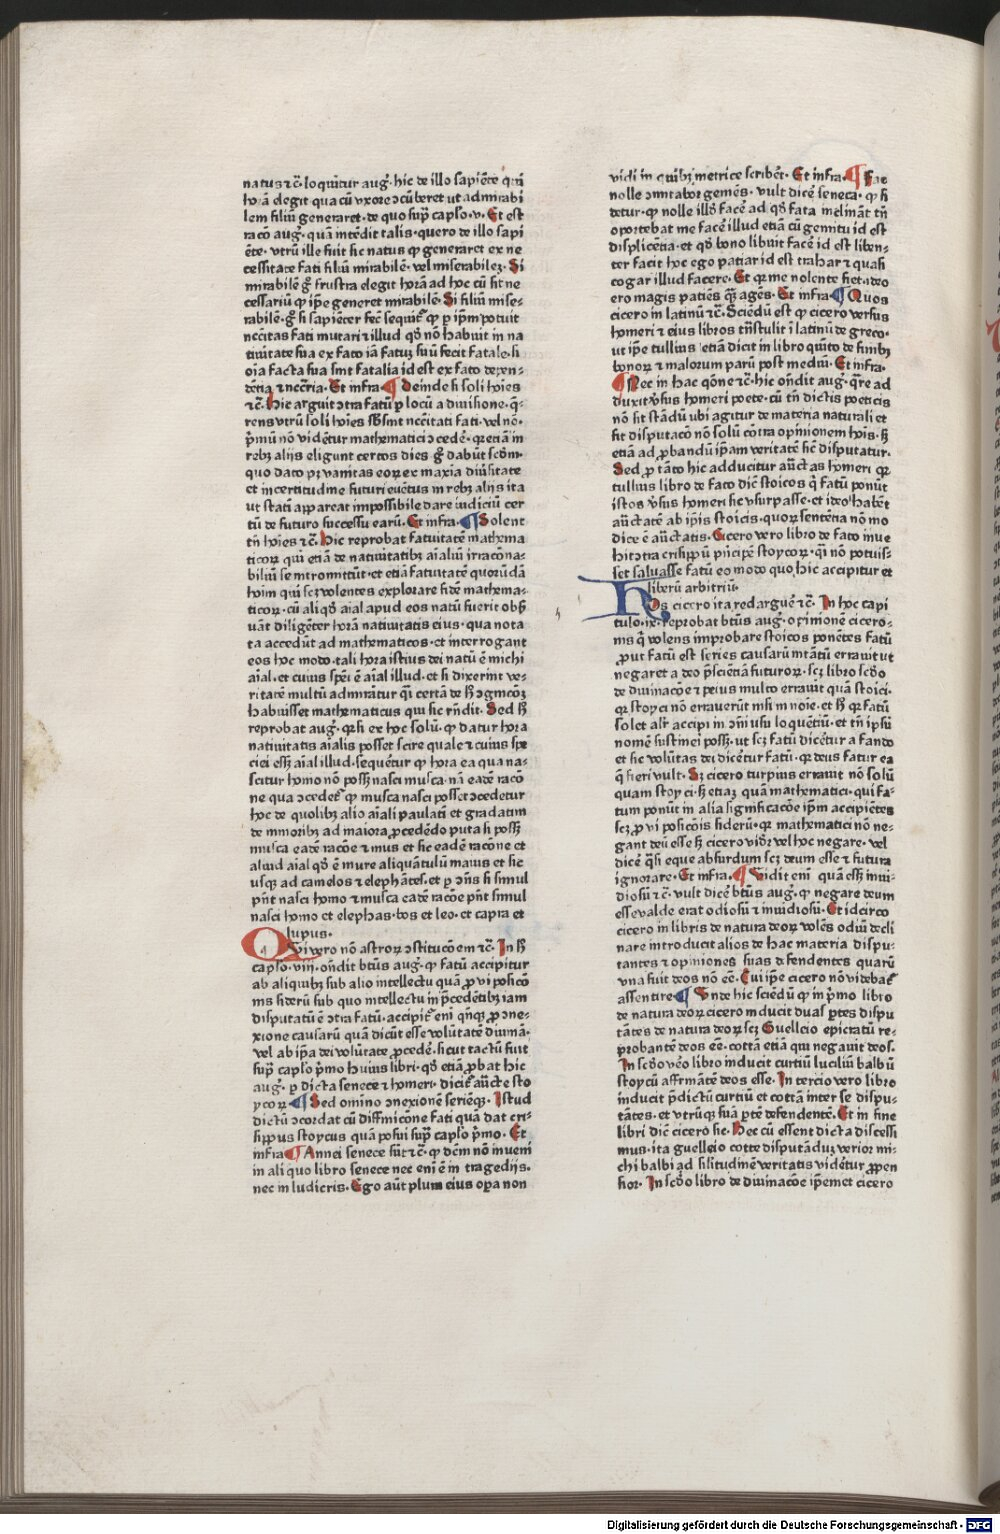 natus ⁊c̄. loquitur aug᷑. hic de illo sapiēte qui
horā elegit qua cū vxore ɔcūberet ut admirabi
lem filiū generaret. de quo sup̄ caplo .v. Et est
racō aug᷑. quā intēdit talis. quero de illo sapi
ēte. vtrū ille fuit sic natus ꝙ generaret ex ne
cessitate fati filiū mirabilē. vel miserabilez. Si
mirabilē g̊ frustra elegit horā ad hoc cū sit ne
cessariū ꝙ ip̄e generet mirabilē. Si filiū mise⸗
rabilē. g̊ si sapiēter fec̄ sequit᷑ ꝙ ꝑ ip̄m potuit
nccitas fati mutari ⁊ illud qd̄ nō habuit in na
tiuitate sua ex fato iā fatuꝫ suū fecit fatale. si
oīa facta sua sint fatalia id est ex fato depen⸗
dētia ⁊ nccr̄ia. Et infra ¶ Deinde si soli hoīes
⁊c̄. Hic arguit ɔtra fatū ꝑ locū a diuisione. q̄⸗
rens vtrū soli hoīes sb̄sint nccitati fati. vel nē.
p̄mū nō vidētur mathematici ɔcedē. qꝛ etiā in
rebꝫ alijs eligunt certos dies. g̊ dabūt scd̄m.
quo dato pꝫ vanitas eoꝝ ex maxīa diūsitate
et incertitudīne futuri euētus in rebꝫ alijs ita
ut statī appareat impossibile dare iudiciū cer
tū de futuro successu earū. Et infra. ¶ Solent
tn̄ hoīes ⁊c̄. Hic reprobat fatuitatē mathema
ticoꝝ qui etiā de natiuitatibꝫ aīaliū irracōna⸗
biliū se intromittūt. et etiā fatuitatē quorūdā
hoīm qui scꝫ volentes explorare fidē mathema⸗
ticoꝝ. cū aliqd̄ aīal apud eos natū fuerit obs̄
uāt diligēter horā natiuitatis eius. qua nota
ta accedūt ad mathematicos. et interrogant
eos hoc modo. tali hora istius dei natū ē michi
aīal. et cuius sp̄ei ē aīal illud. et si dixerint ve⸗
ritatē multū admirātur qꝛ certā de h̄ ɔgnicōꝫ
habuisset mathematicus qui sic rn̄dit. Sed h̄
reprobat aug᷑. qꝛ si ex hoc solū. ꝙ datur hora
natiuitatis aīalis posset scire quale ⁊ cuius spe
ciei ess̄ aīal illud. sequētur ꝙ hora ea qua na⸗
scitur homo nō poss̄ nasci musca. nā eadē racō
ne qua ɔcedet᷑ ꝙ musca nasci posset ɔcedetur
hoc de quolibꝫ alio aīali paulati et gradatim
de minoribꝫ ad maiora ꝓcedēdo puta si poss̄
musca eadē racōe ⁊ mus et sic eadē racōne et
aliud aīal qd̄ ē mure aliquātulū maius et sic
usqꝫ ad camelos ⁊ elephātes. et ꝑ ɔn̄s si simul
pn̄t nasci homo ⁊ musca eadē racōe pn̄t simul
nasci homo et elephas. bos et leo. et capra et
lupus.
QVi vero nō astroꝝ ɔstitucōem ⁊c̄. In h̄
caplo .viii. on̄dit btūs aug᷑. ꝙ fatū accipitur
ab aliquibꝫ sub alio intellectu quā ꝓ vi posicō
nis siderū sub quo intellectu in p̄cedētibꝫ iam
disputatū ē ɔtra fatū. accipit᷑ enī qn̄qꝫ ꝓ ɔne⸗
xione causarū quā dicūt esse volūtatē diuinā.
vel ab ip̄a dei volūtate ꝓcedē. sicut tactū fuit
sup̄ caplo p̄mo huius libri. qd̄ etiā ꝓbat hic
aug᷑. ꝑ dicta senece ⁊ homeri. dicit᷑ aūcte sto
ycoꝝ ¶ Sed omīno ɔnexionē seriēqꝫ. Istud
dictū ɔcordat cū diffinicōne fati quā dat cri⸗
sippus stoycus quā posui sup̄ caplo p̄mo. Et
infra ¶ Annei senece sūt ⁊c̄. ꝙ dcm̄ nō inueni
in aliquo libro senece nec enī ē in tragedijs.
nec in ludicris. Ego aūt plura eius oꝑa non
vidi in quibꝫ metrice scribēt. Et infra. ¶ Fac
nolle ɔmitabor gemēs. vult dicē seneca. ꝙ si
detur. ꝙ nolle illd̄ facē ad qd̄ fata inclināt tn̄
oportebat me facē illud etiā cū gemitu id est
displicētia. et qd̄ bono libuit facē id est liben⸗
ter facit hoc ego patiar id est trahar ⁊ quasi
cogar illud facere. Et qꝛ me nolente fiet. ideo
ero magis patiēs qꝫ agēs. Et infra ¶ Quos
cicero in latinū ⁊c̄. Sciēdū est ꝙ cicero versus
homeri ⁊ eius libros trāstulit ī latinū de greco.
ut ip̄e tullius etiā dicit in libro quīto de finibꝫ
bonoꝝ ⁊ malorum parū post mediū. Et infra.
¶ Nec in hac qōne ⁊c̄. hic on̄dit aug᷑. q̄re ad
duxit v̄sus homeri poete. cū tn̄ dictis poeticis
nō sit stādū ubi agitur de materia naturali et
fit disputacō nō solū cōtra opinionem hoīs. s̄
etiā ad ꝓbandū ip̄am veritatē sic disputatur.
Sed ꝓ tāto hic adducitur aūctas homeri qꝛ
tullius libro de fato dic̄ stoicos q̄ fatū ponūt
istos v̄sus homeri sic vsurpasse. et ideo habēt
aūctatē ab ip̄is stoicis. quoꝝ sentētia nō mo
dice ē aūctatis. Cicero vero libro de fato inue
hit ɔtra crisippū p̄ncipē stoycoꝝ. qꝛ nō potuis⸗
set saluasse fatū eo modo quo hic accipitur et
liberū arbitriū.
HOs cicero ita redarguē ⁊c̄. In hoc capi
tulo .ix. reprobat btūs aug᷑. opinionē cicero⸗
nis q̄ volens improbare stoicos ponētes fatū
ꝓut fatū est series causarū intātū errauit ut
negaret a deo p̄sciētiā futuroꝝ. scꝫ libro scd̄o
de diuinacōe ⁊ peius multo errauit quā stoici.
qꝛ stoyci nō errauerūt nisi in noīe. et h̄ qꝛ fatū
solet alr̄ accipi in ɔm̄i usu loquētiū. et tn̄ ipsū
nomē sustineri poss̄. ut scꝫ fatū dicētur a fando
et sic volūtas dei dicētur fatū. qꝛ deus fatur ea
q̄ fieri vult. Sꝫ cicero turpius errauit nō solū
quam stoyci. s̄ etiaꝫ quā mathematici. qui fa⸗
tum ponūt in alia significacōe ip̄m accipiētes
scꝫ ꝓ vi posicōis siderū. qꝛ mathematici nō ne⸗
gant deū esse s̄ cicero vidr̄ vel hoc negare. vel
dicē q̄si eque absurdum scꝫ deum esse ⁊ futura
ignorare. Et infra. ¶ Vidit enī quā ess̄ inui⸗
diosū ⁊c̄. vult dicē btūs aug᷑. ꝙ negare deum
esse valde erat odiosū ⁊ inuidiosū. Et idcirco
cicero in libris de natura deoꝝ volēs odiū decli
nare introducit alios de hac materia dispu⸗
tantes ⁊ opiniones suas defendentes quarū
vna fuit deos nō eē. Cui ip̄e cicero nō videbat᷑
assentire ¶ Vnde hic sciēdū ꝙ in p̄mo libro
de natura deoꝝ cicero inducit duas ꝑtes dispu
tātes de natura deoꝝ scꝫ Guelleio epicratū re⸗
ꝓbantē deos eē. cottā etiā qui negauit deos.
In scd̄o vēo libro inducit curtiū luciliū balbū
stoycū affirmātē deos esse. In tercio vero libro
inducit p̄dictū curtiū et cottā inter se dispu⸗
tātes. et vtrūqꝫ suā ꝑtē defendentē. Et in fine
libri dic̄ cicero sic. Hec cū essent dicta discessi
mus. ita guelleio cotte disputādūꝫ verior mi⸗
chi balbi ad silitudinē veritatis vidētur ꝓpen
sior. In scd̄o libro de diuinacōe ip̄emet cicero
Digitalisierung gefördert durch die Deutsche Forschungsgemeinschaft - DFG